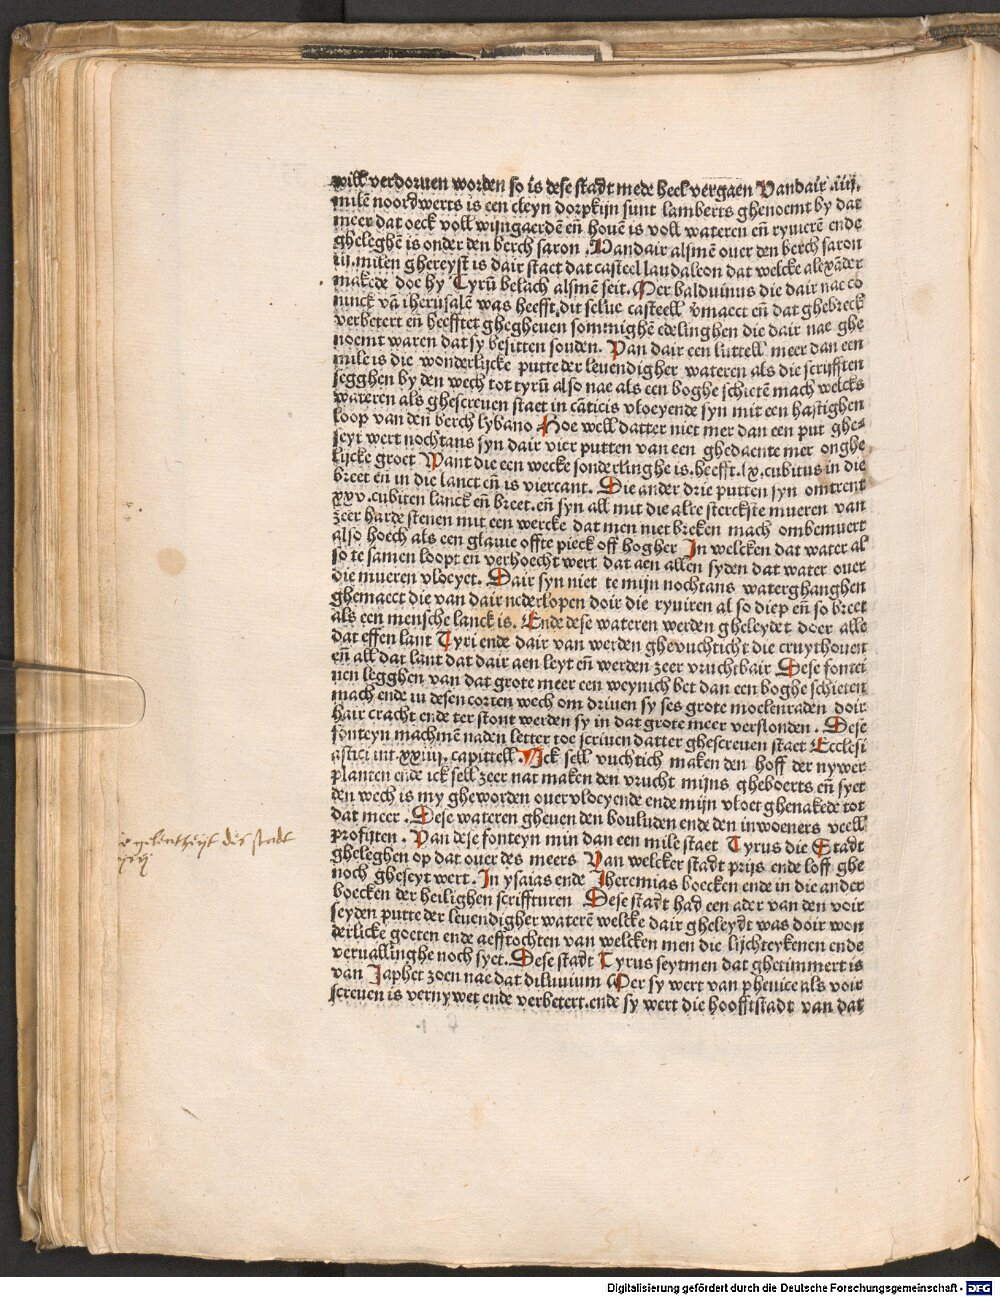 will verdoruen worden so is dese stadt mede heel vergaen Vandair .iiij.
milē noordwerts is een cleyn dorpkijn sunt lamberts ghenoemt by dat
meer dat oeck voll wijngaerdē eñ houē is voll wateren eñ ryuierē ende
gheleghē is onder den berch saron . Vandair alsmē ouer den berch saron
iii. milen ghereyst is dair staet dat casteel laudaleon dat welcke alexāder
makede doe hy Tyrū belach alsmē seit. Mer balduinus die dair nae co
ninck vā iherusalē was heefft dit selue casteell vmaect eñ dat ghebreck
verbetert eñ heefftet ghegheuen sommighē edelinghen die dair nae ghe
noemt waren dat sy besitten souden. Van dair een luttell meer dan een
mile is die wonderlijcke putte der leuendigher wateren als die scrijfften
segghen by den wech tot tyrū also nae als een boghe schietē mach welcks
wateren als ghescreuen staet in cāticis vloeyende syn mit een hastighen
loop van den berch lybano Hoe well datter niet mer dan een put ghe-
seyt wert nochtans syn dair vier putten van een ghedaente mer onghe
lijcke groet Want die een wecke sonderlinghe is. heefft .lx. cubitus in die
breet eñ in die lanct eñ is viercant. Die ander drie putten syn omtrent
xxv. cubiten lanck eñ breet. eñ syn all mit die alre sterckste mueren van
zeer harde stenen mit een wercke dat men niet breken mach ombemuert
also hoech als een glauie offte pieck off hogher In welcken dat water al
so te samen loopt en verhoecht wert dat aen allen syden dat water ouer
die mueren vloeyet. Dair syn niet te mijn nochtans waterghanghen
ghemaect die van dair nederlopen doir die ryuiren al so diep eñ so breet
als een mensche lanck is. Ende dese wateren werden gheleydet doer alle
dat effen lant Tyri ende dair van werden ghevuchticht die cruythouen
eñ all dat lant dat dair aen leyt eñ werden zeer vruchtbair Dese fontei
nen legghen van dat grote meer een weynich bet dan een boghe schieten
mach ende in desen corten wech om driuen sy ses grote moelenraden doir
hair cracht ende ter stont werden sy in dat grote meer verslonden . Dese
fonteyn machmē naden letter toe scriuen datter ghescreuen staet Ecclesi
astici int .xxiiij. capittell. Ick sell vuchtich maken den hoff der nywer
planten ende ick sell zeer nat maken den vrucht mijns gheboerts eñ syet
den wech is my gheworden ouervloeyende ende mijn vloet ghenakede tot
dat meer . Dese wateren gheuen den bouluden ende den inwoeners veell
profijten . Van dese fonteyn min dan een mile staet Tyrus die Stadt
gheleghen op dat ouer des meers Van welcker stadt prijs ende loff ghe
noch gheseyt wert. In ysaias ende Jheremias boecken ende in die ander
boecken der heilighen scriffturen Dese stadt had een ader van den voir
seyden putte der leuendigher waterē welcke dair gheleydt was doir won
derlicke goeten ende aefftochten van welcken men die lijchteykenen ende
veruallinghe noch syet. Dese stadt Tyrus seytmen dat ghetimmert is
van Japhet zoen nae dat diluuium Mer sy wert van phenice als voir
screuen is vernywet ende verbetert. ende sy wert die hooftstadt van dat
gelentheyt des stadt
Digitalisierung gefördert durch die Deutsche Forschungsgemeinschaft - DFG